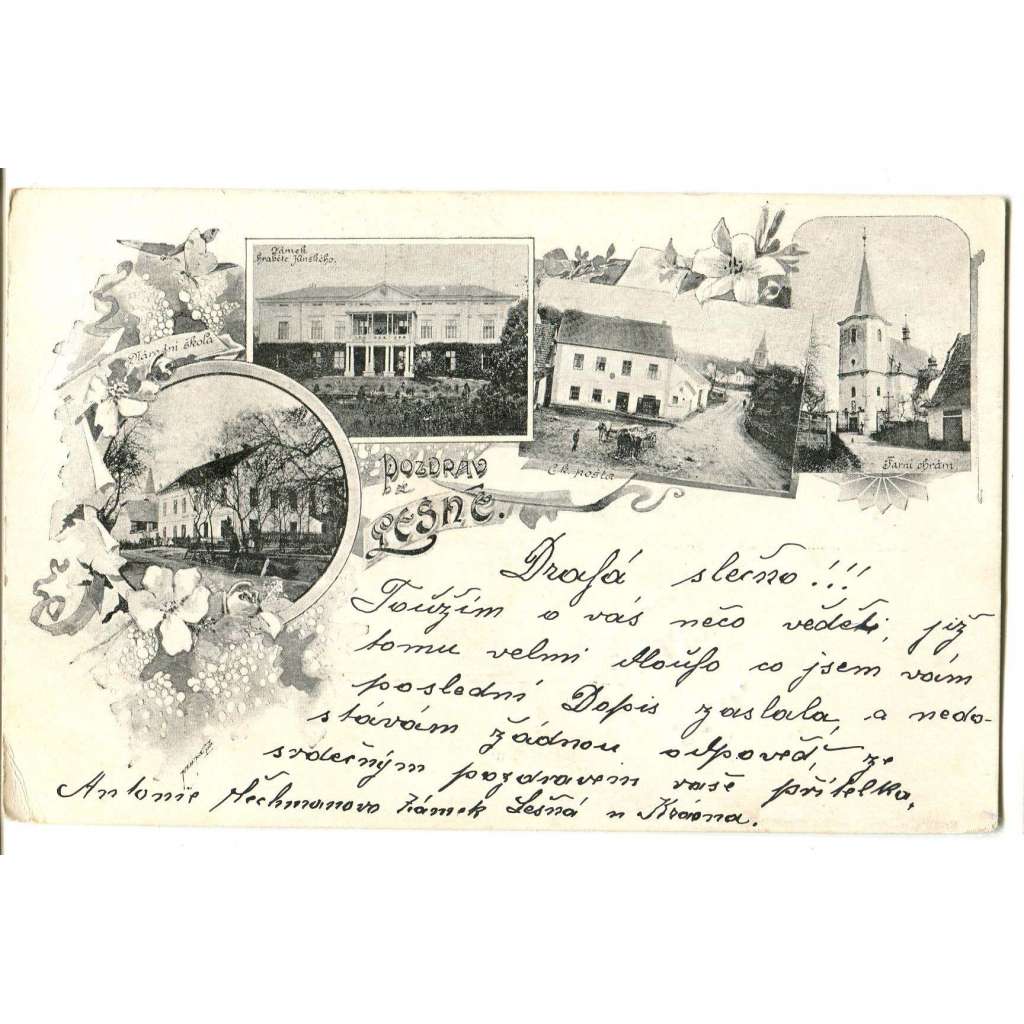 Zámek
hraběte Kinského.
Národní škola
C.k. pošta
Farní chrám
POZDRAV
ze
LEŠNÉ.
Drahá slečno!!!
Toužím o vás něco věděti, již
tomu velmi dlouho co jsem vám
poslední Dopis zaslala, a nedo-
stávám žádnou odpověď, ze
srdečným pozdravem vaše přítelka,
Antonie Zámek Lešná u Krásna.